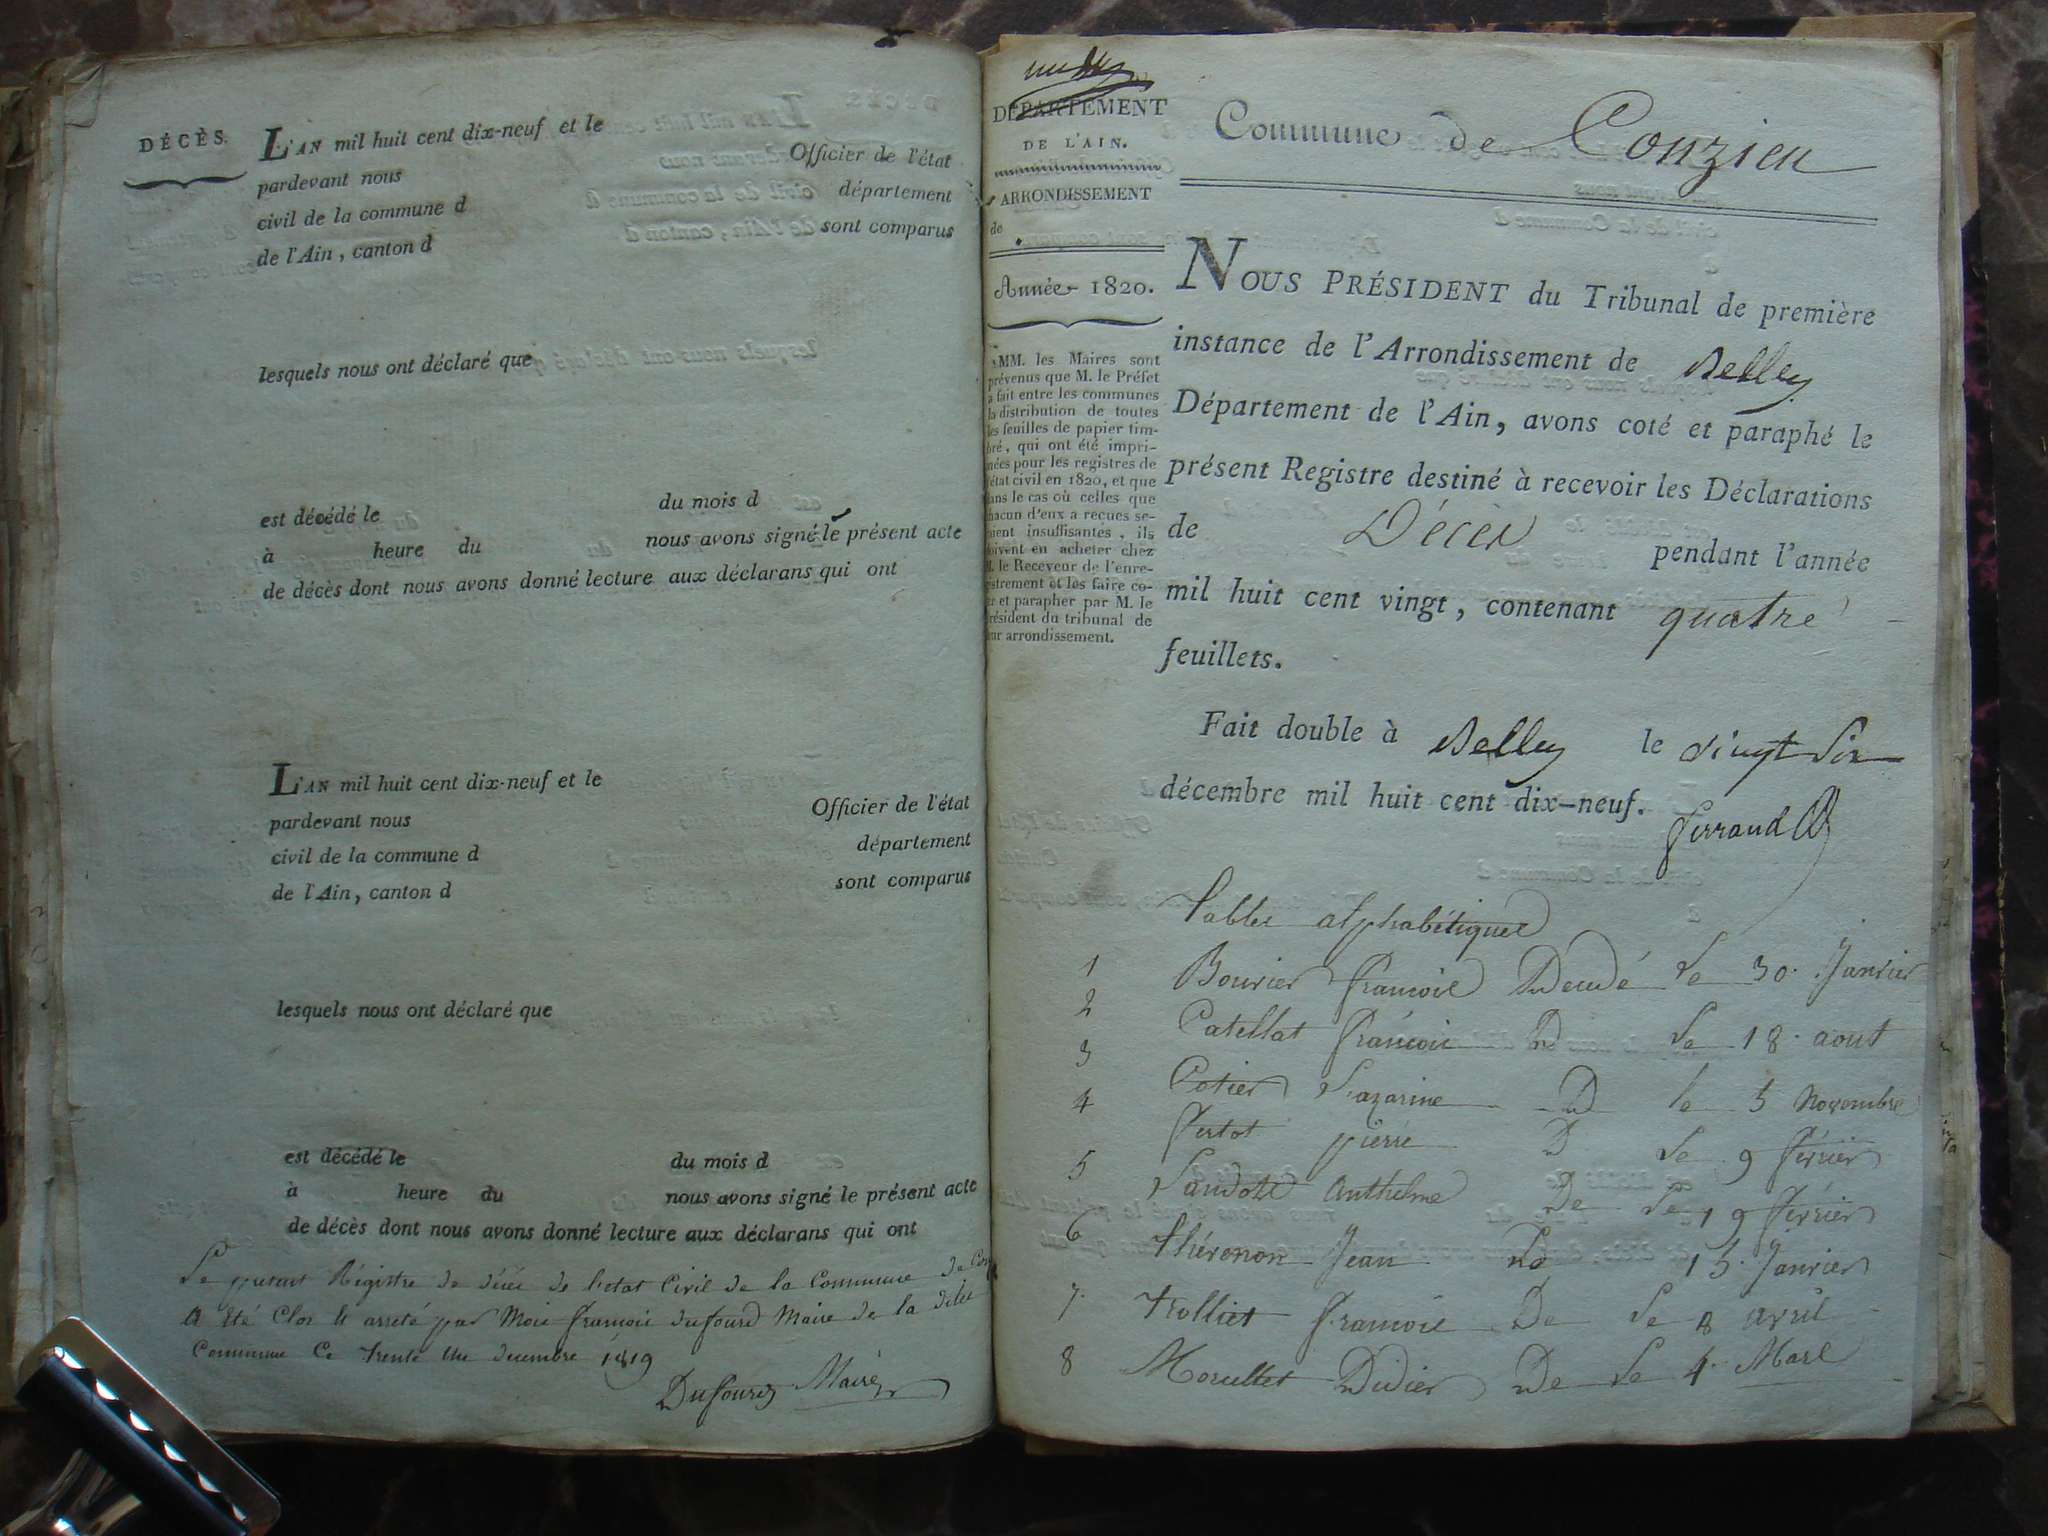 DÉCÈS.
L'AN mil huit cent dix-neuf et le
pardevant nous Officier de l'état
civil de la commune d département
de l'Ain, canton d sont comparus
lesquels nous ont déclaré que
est décédé le du mois d
à heure du nous avons signé le présent acte
de décès dont nous avons donné lecture aux déclarans qui ont
L'AN mil huit cent dix-neuf et le
pardevant nous Officier de l'état
civil de la commune d département
de l'Ain, canton d sont comparus
lesquels nous ont déclaré que
est décédé le du mois d
à heure du nous avons signé le présent acte
de décès dont nous avons donné lecture aux déclarans qui ont
Le présent Régistre de décès de l'état Civil de la Commune de Con
a été Clos et arreté par Moi françois dufourd Maire de la dite
Commune Ce trente un decembre 1819
Dufourd Maire
DÉPARTEMENT
DE L'AIN.
ARRONDISSEMENT
de
Année 1820.
MM. les Maires sont
prévenus que M. le Préfet
a fait entre les communes
la distribution de toutes
les feuilles de papier tim-
bré, qui ont été impri-
mées pour les registres de
l'état civil en 1820, et que
dans le cas où celles que
chacun d'eux a reçues se-
raient insuffisantes, ils
doivent en acheter chez
M. le Receveur de l'enre-
gistrement et les faire co-
ter et parapher par M. le
président du tribunal de
leur arrondissement.
Commune de Conzieu
NOUS PRÉSIDENT du Tribunal de première
instance de l'Arrondissement de Belley
Département de l'Ain, avons coté et paraphé le
présent Registre destiné à recevoir les Déclarations
de Décès pendant l'année
mil huit cent vingt, contenant quatre
feuillets.
Fait double à Belley le vingt Six
décembre mil huit cent dix-neuf.
ferrand
Tables alphabétiques
1 Bouvier françois Décédé le 30 Janvier
2 Catellat françois D le 18 aout
3 Cotier Lazarine D le 5 Novembre
4 fertot pierre D le 9 février
5 Landoze anthelme De le 19 février
6 thévenon Jean De 15 Janvier
7 trolliet françois De le 8 avril
8 Morullet Didier De le 4 Mars